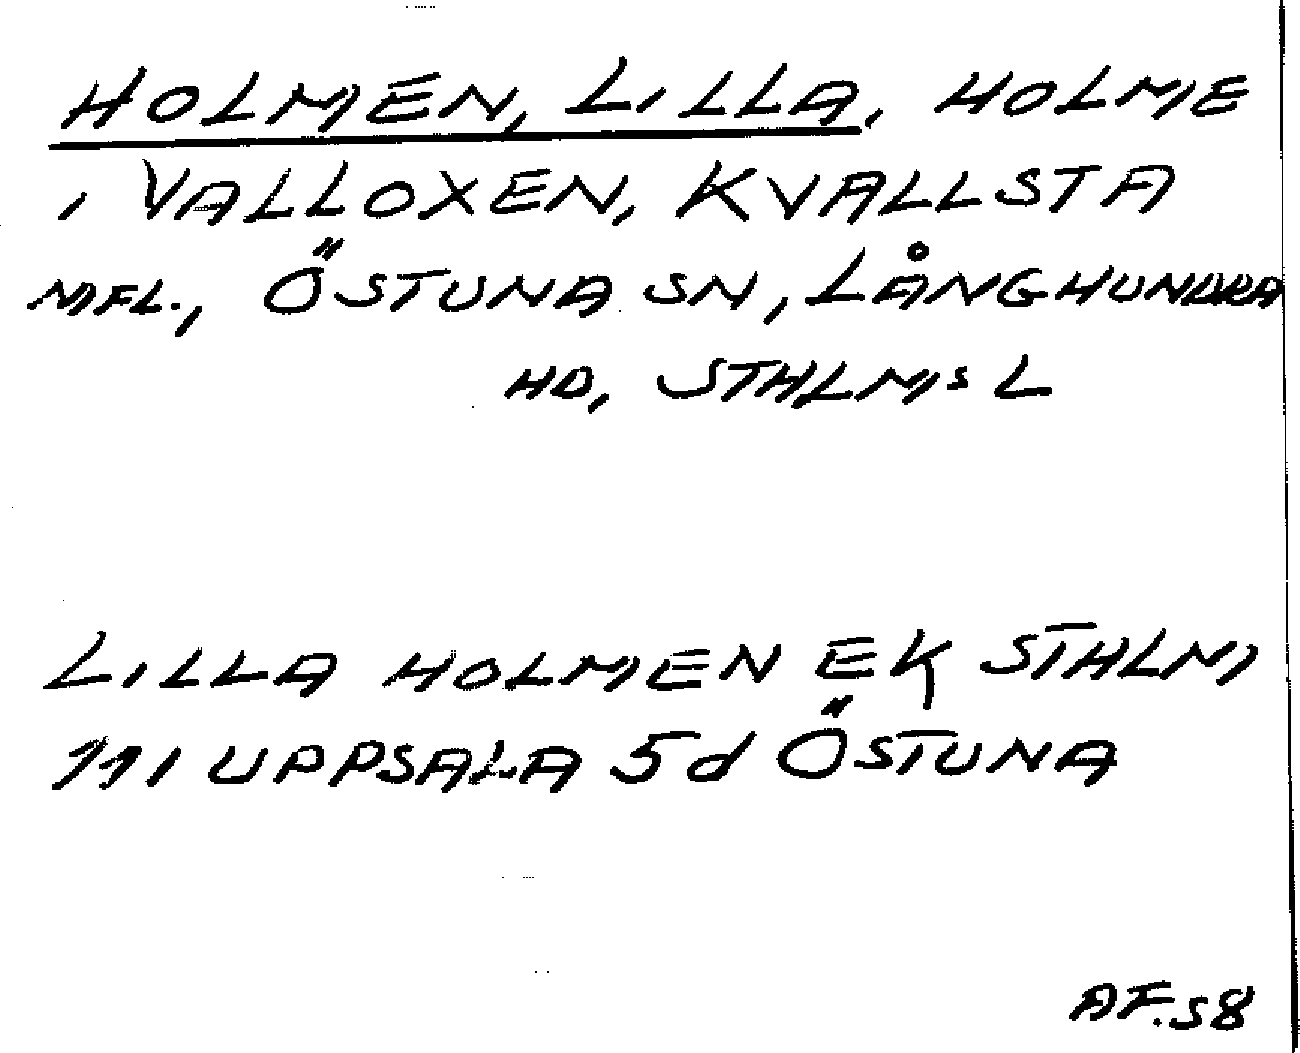 HOLMEN, LILLA, HOLME
I VALLOXEN, KVALLSTA
MFL., ÖSTUNA SN, LÅNGHUNDRA
HD, STHLMS L
LILLA HOLMEN EK STHLM
111 UPPSALA 5d ÖSTUNA
AF. 58